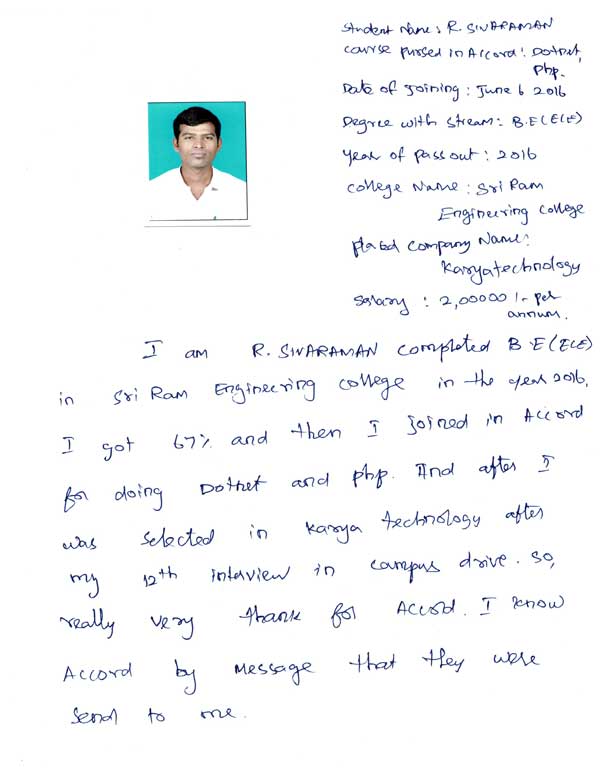 Student Name: R. SIVARAMAN
course pursed in Accord: Dotnet,
php.
Date of Joining: June 6 2016
Degree with Stream: B.E(ECE)
year of pass out: 2016
college Name: Sri Ram
Engineering college
placed company Name:
Karyatechnology
Salary: 2,00000/- per
annum.
I am R. SIVARAMAN completed B.E(ECE)
in Sri Ram Engineering college in the year 2016,
I got 67% and then I joined in Accord
for doing Dotnet and php. And after I
was selected in Karya technology after
my 12th interview in campus drive. so,
really very thank for Accord. I know
Accord by message that they were
send to me.